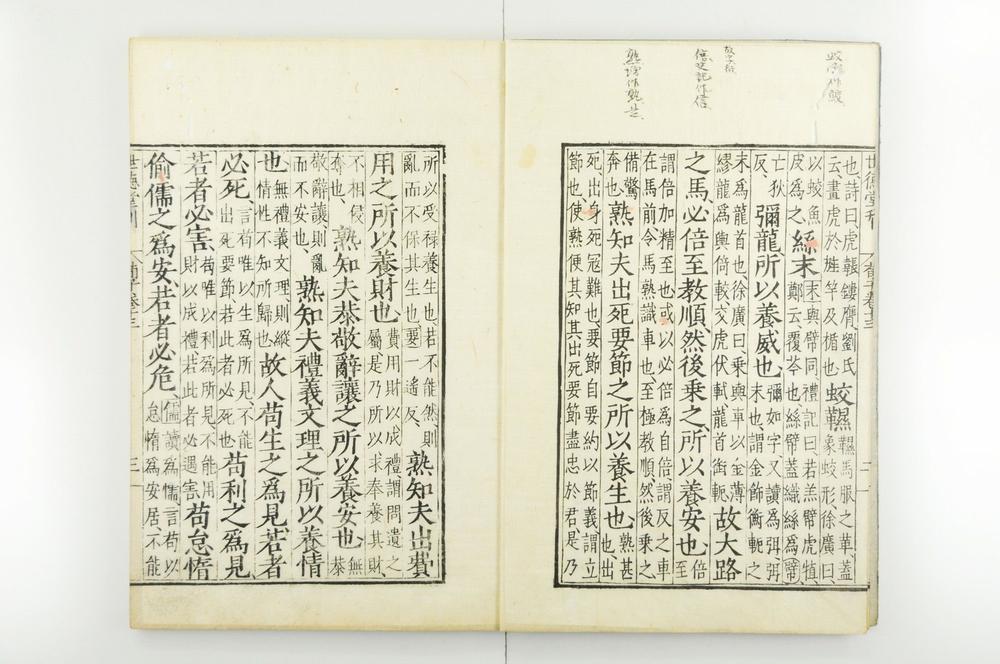 倍史記作信
世德堂刊
荀子卷十三
三
也詩曰虎韔鏤膺劉氏
云畫虎於旌竿及楯也
蛟韅
韅馬服之革蓋
象蛟形徐廣曰
以蛟魚
皮爲之
絲末
末與幦同禮記曰若羔幦虎犆
鄭云覆苓也絲幦蓋織絲爲幦
亡狄
反
彌龍所以養威也
彌如字又讀爲弭弭
末也謂金飾衡軛之
末爲龍首也徐廣曰乘輿車以金薄
繆龍爲輿倚較交虎伏軾龍首銜軛
故大路
之馬必倍至教順然後乘之所以養安也
倍
至
謂倍加精至也或以必倍爲自倍謂反之車
在馬前令馬熟識車也至極教順然後乘之
備驚
奔也
熟知夫出死要節之所以養生也
熟甚
也出
死出身死冠難也要節自要約以節義謂立
節也使熟便其知其出死要節盡忠於君是乃
所以受禄養生也若不能然則
亂而不保其生也要一遙反
熟知夫出費
用之所以養財也
費用財以成禮謂問遺之
屬是乃所以求奉養其財
不相侵
奪也
熟知夫恭敬辭讓之所以養安也
無
恭
敬辭讓則亂
而不安也
熟知夫禮義文理之所以養情
也
無禮義文理則縱
情性不知所歸也
故人苟生之爲見若者
必死
言苟唯以生爲所見不能
出死要節若此者必死也
苟利之爲見
若者必害
苟唯以利爲所見不能用
財以成禮若此者必遇害
苟怠惰
偷儒之爲安若者必危
儒讀爲懦言苟以
怠惰爲安居不能